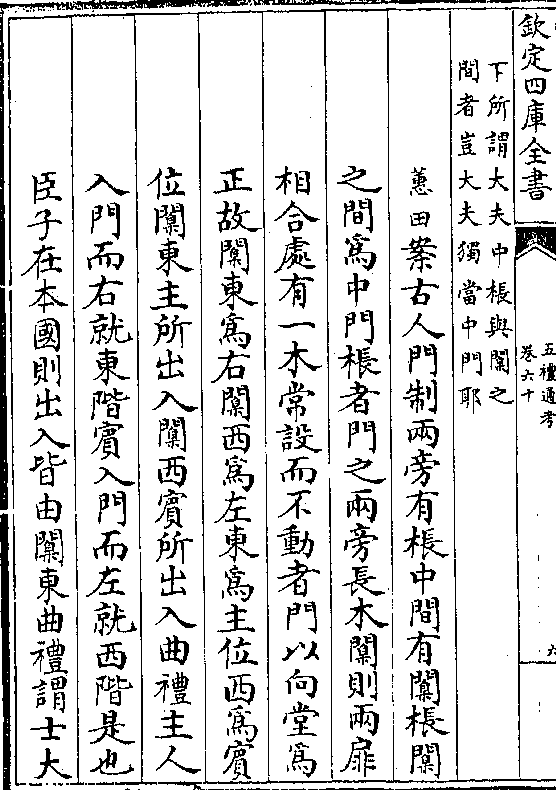 欽定四庫全書
五禮通考
卷六十
六
下所謂大夫中棖與闑之
間者豈大夫獨當中門耶
蕙田案古人門制兩旁有棖中間有闑棖闑
之間為中門棖者門之兩旁長木闑則兩扉
相合處有一木常設而不動者門以向堂為
正故闑東為右闑西為左東為主位西為賓
位闑東主所出入闑西賓所出入曲禮主人
入門而右就東階賓入門而左就西階是也
臣子在本國則出入皆由闑東曲禮謂士大